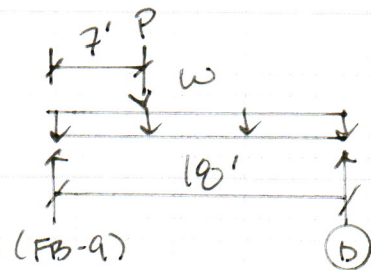 7' P
w
18'
(FB-9) D